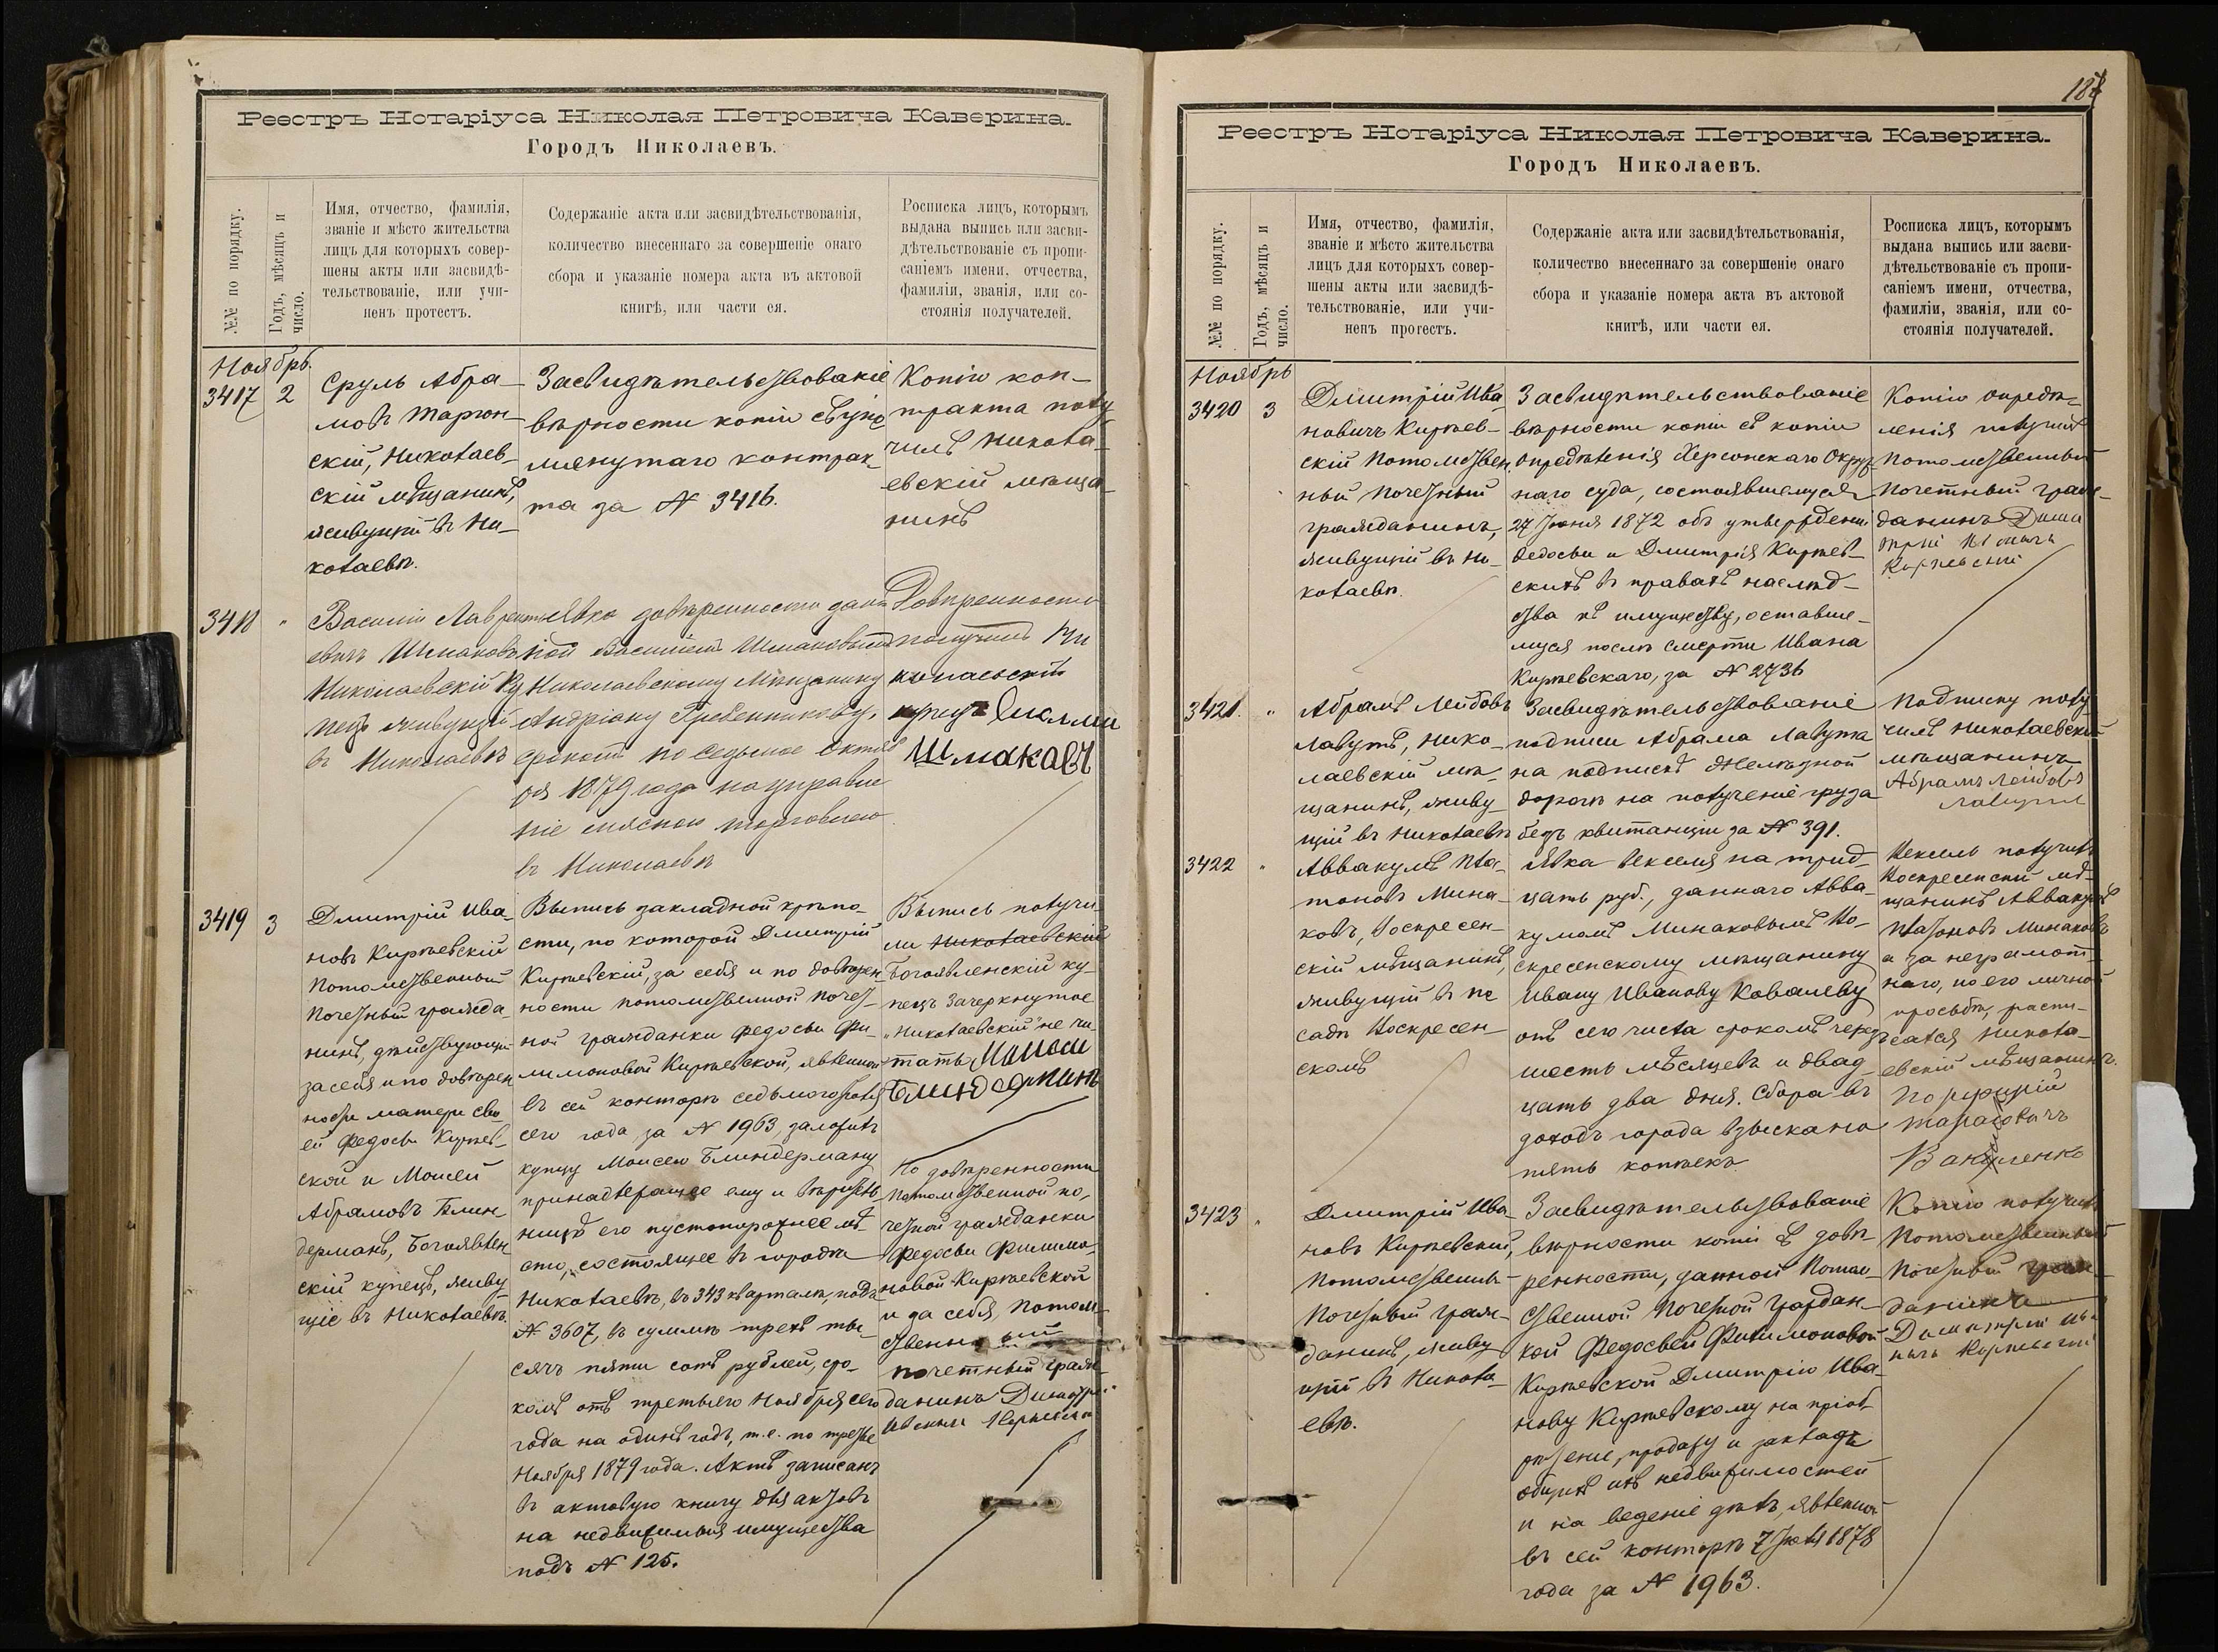 Реестръ Нотаріуса Николая Петровича Каверина.
Городъ Николаевъ.
№№ по порядку.
Годъ, мѣсяцъ и
число.
Имя, отчество, фамилія,
званіе и мѣсто жительства
лицъ для которыхъ совер-
шены акты или засвидѣ-
тельствованіе, или учи-
ненъ протестъ.
Содержаніе акта или засвидѣтельствованія,
количество внесеннаго за совершеніе онаго
сбора и указаніе номера акта въ актовой
книгѣ, или части ея.
Росписка лицъ, которымъ
выдана выпись или засви-
дѣтельствованіе съ пропи-
саніемъ имени, отчества,
фамиліи, званія, или со-
стоянія получателей.
Ноябрь.
3417
2
Сруль Абра-
мовъ
скій, Николаев-
скій мѣщанинъ,
живущій въ Ни-
колаевѣ.
Засвидѣтельствованіе
вѣрности копіи съ упо-
мянутаго контрак-
та за № 3416.
Копію кон-
тракта полу
чилъ Никола-
евскій мѣща-
нинъ
3418
"
Василій Лаврентьевичъ Шмаковъ
Николаевскій Ку
пецъ живущій
въ Николаевѣ
Явка довѣренности дан
ной Василіемъ Шмаковымъ
Николаевскому Мѣщанину
Андріану Гребенникову,
срокомъ по седьмое октяб
ря 1879 года на управле
ніе мясною торговлею
въ Николаевѣ
Довѣренность
получилъ Ни
колаевскій
купецъ
Шмакавъ
3419
3
Дмитрій Ива-
новъ Киряевскій
Потомственный
Почетный гражда-
нинъ, дѣйствующій
за себя и по довѣрен
ности матери сво
ей Федосьи Киряев-
ской и Моисей
Абрамовъ Блин-
дерманъ, Богоявлен
скій купецъ, живу
щіе въ Николаевѣ.
Выпись закладной крѣпо-
сти, по которой Дмитрій
Киряевскій, за себя и по довѣрен
ности потомственной почет-
ной гражданки Федосьи Фи-
лимоновой Киряевской, явленной
въ сей конторѣ седьмого
сего года за № 1963, заложилъ
купцу Моисею Блиндерману
принадлежащее ему и вѣритель-
ницѣ его пустопорожнее мѣ
сто, состоящее въ городѣ
Николаевѣ, въ 343 кварталѣ, подъ
№ 3607, въ суммѣ трехъ ты-
сячъ пяти сотъ рублей, сро-
комъ отъ третьяго Ноября сего
года на одинъ годъ, т.е. по третье
Ноября 1879 года. Актъ записанъ
въ актовую книгу для актовъ
на недвижимыя имущества
подъ № 125.
Выпись получи-
ли Николаевскій
Богоявленскій ку-
пецъ Зачеркнутое
„Николаевскій" не чи-
тать Мойсеи
Блиндерманъ
По довѣренности
Потомственной по-
четной гражданки
Федосьи Филимо-
новой Киряевской
и за себя, Потом-
ственный
почетный граж-
данинъ Дмитрій
Киряевскій
187
Реестръ Нотаріуса Николая Петровича Каверина.
Городъ Николаевъ.
№№ по порядку.
Годъ, мѣсяцъ и
число.
Имя, отчество, фамилія,
званіе и мѣсто жительства
лицъ для которыхъ совер-
шены акты или засвидѣ-
тельствованіе, или учи-
ненъ протестъ.
Содержаніе акта или засвидѣтельствованія,
количество внесеннаго за совершеніе онаго
сбора и указаніе номера акта въ актовой
книгѣ, или части ея.
Росписка лицъ, которымъ
выдана выпись или засви-
дѣтельствованіе съ пропи-
саніемъ имени, отчества,
фамиліи, званія, или со-
стоянія получателей.
Ноябрь
3420
3
Дмитрій Ива-
новичъ Киряев-
скій Потомствен
ный Почетный
гражданинъ,
живущій въ Ни-
колаевѣ.
Засвидѣтельствованіе
вѣрности копіи съ копіи
опредѣленія Херсонскаго Окруж-
наго суда, состоявшемуся
27 Іюня 1872 объ утвержденіи
Федосьи и Дмитрія Киряев-
скихъ въ правахъ наслѣд-
ства къ имуществу, оставше-
муся послѣ смерти Ивана
Киряевскаго, за № 2736
Копію опредѣ-
ленія получилъ
Потомственный
Почетный граж-
данинъ Дми
трій
Киряевскій
3421.
"
Абрамъ Лейбовъ
Лавутъ, Нико-
лаевскій мѣ-
щанинъ, живу-
щій въ Николаевѣ
Засвидѣтельствованіе
подписи Абрама Лавута
на подпискѣ Желѣзной
дорогѣ на полученіе груза
безъ квитанціи за № 391.
Подписку полу
чилъ Николаевскій
мѣщанинъ
Абрамъ Лейбовъ
Лавутъ
3422
"
Аввакумъ Пла-
тоновъ Мина-
ковъ, Воскресен-
скій мѣщанинъ,
живущій въ по
садѣ Воскресен-
скомъ
Явка векселя на трид-
цать руб., даннаго Авва-
кумомъ Минаковымъ Во-
скресенскому мѣщанину
Ивану Иванову Ковалеву
отъ сего числа срокомъ черезъ
шесть мѣсяцевъ и двад-
цать два дня. Сбора въ
доходъ города взыскано
пять копѣекъ.
Вексель получилъ
Воскресенскій мѣ-
щанинъ Аввакумъ
Платоновъ Минаковъ
а за неграмот-
наго, по его личной
просьбѣ, распи-
сался Никола-
евскій мѣщанинъ.
Порфирій
Тарасовичъ
3423
"
Дмитрій Ива-
новъ Киряевскій,
Потомственный
Почетный граж-
данинъ, живу
щій въ Никола-
евѣ.
Засвидѣтельствованіе
вѣрности копіи съ довѣ-
ренности, данной Потом-
ственной Почетной Граждан-
кой Федосьей Филимоновой
Киряевской Дмитрію Ива-
нову Киряевскому на пріоб-
рѣтеніе, продажу и закладъ
общихъ ихъ недвижимостей
и на веденіе дѣлъ, явленной
въ сей конторѣ 7 1878
года за № 1963.
Копію получилъ
Потомственный
Почетный граж-
данинъ
Дмитрій Ива
нычъ Киряевскій